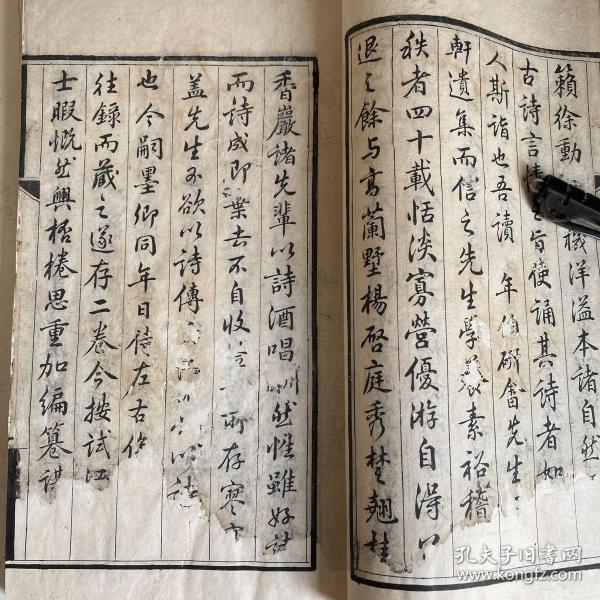 籟徐動機洋溢本諸自然
古詩言情之旨使誦其詩者如
人斯詣也吾讀 年伯硏畬先生
軒遺集而信之先生學養素裕稽
秩者四十載恬淡寡營優游自得
退之餘与高蘭墅楊啓庭秀楚翹桂
香巖諸先輩以詩酒唱酬然性雖好詩
而詩成即棄去不自收存寥
盖先生不欲以詩傳
也今嗣墨卿同年日侍左右
往錄而藏之遂存二卷今按試江
士暇慨然興桮棬思重加編纂謀
孔夫子旧书网
www.kongfz.com